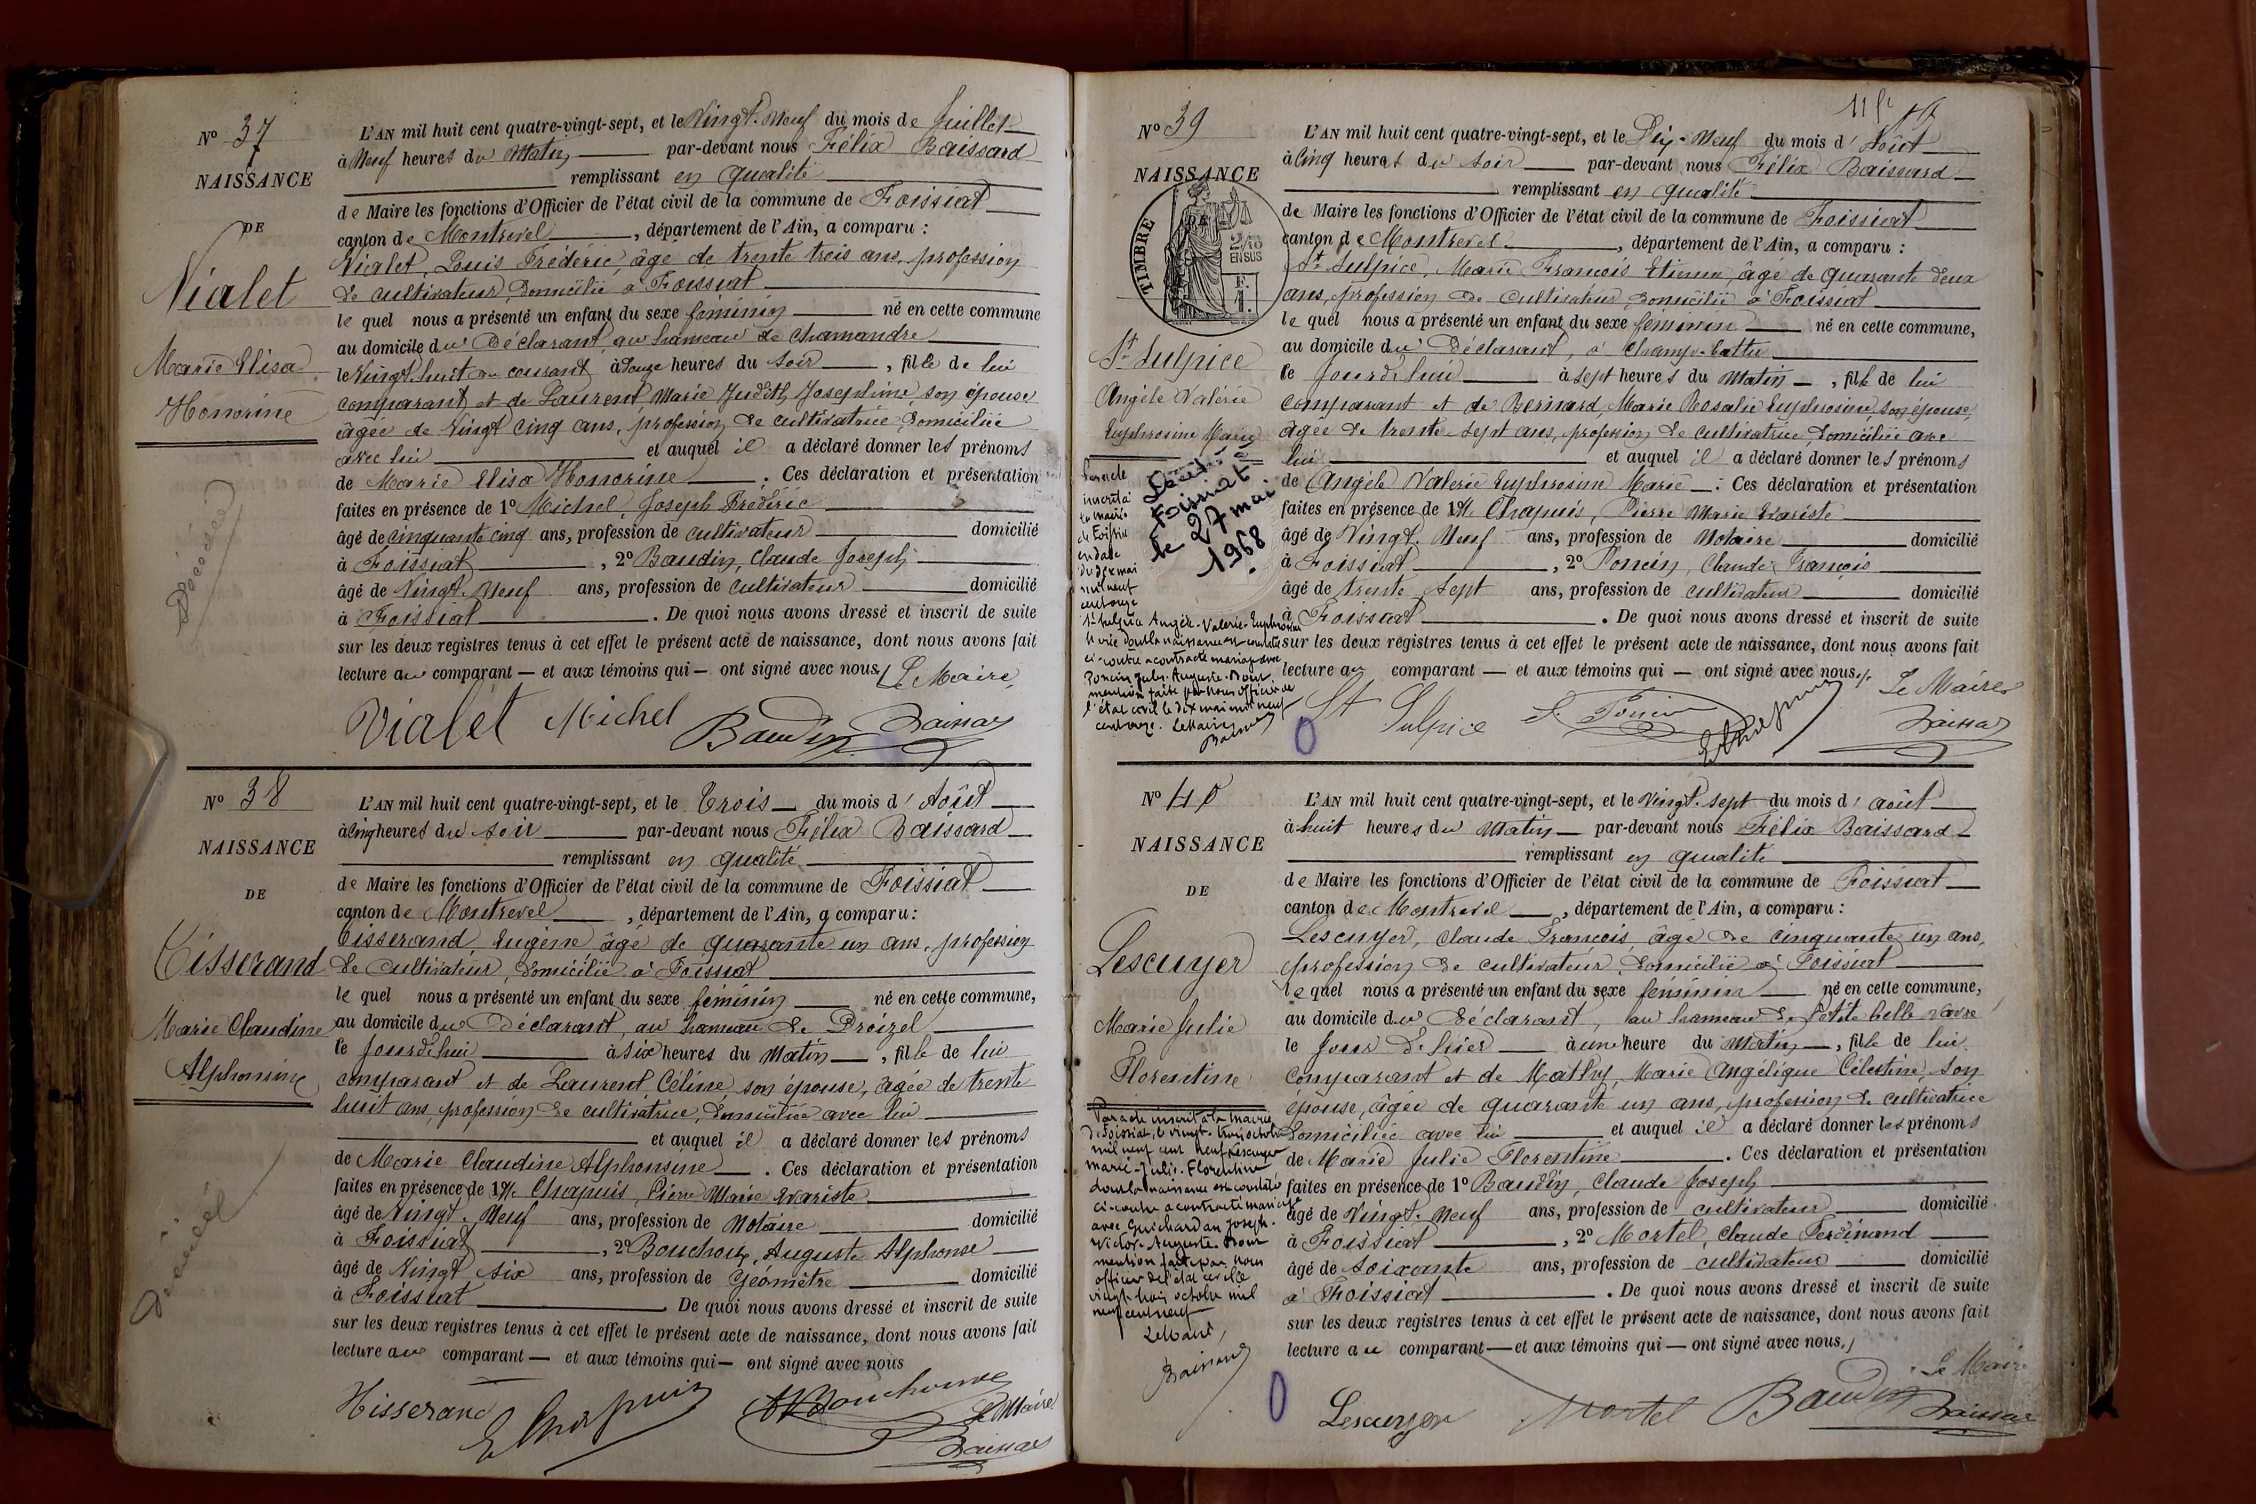 N° 37
NAISSANCE
DE
Vialet
Marie Elisa
Honorine
Décédée
L'AN mil huit cent quatre-vingt-sept, et le Vingt-Neuf du mois de Juillet
à Neuf heures du Matin par-devant nous Félix Baissard
remplissant en qualité
de Maire les fonctions d'Officier de l'état civil de la commune de Foissiat
canton de Montrevel, département de l'Ain, a comparu :
Vialet, Louis Frédéric, âgé de trente trois ans, profession
de cultivateur, domicilié à Foissiat
le quel nous a présenté un enfant du sexe féminin né en cette commune
au domicile du Déclarant, au hameau de Chamandre
le Vingt-huit du courant, à Douze heures du soir, fille de lui
comparant et de Laurent, Marie Judith Joséphine son épouse
âgée de Vingt cinq ans, profession de cultivatrice, domiciliée
avec lui et auquel il a déclaré donner les prénoms
de Marie Elisa Honorine. Ces déclaration et présentation
faites en présence de 1° Michel, Joseph Frédéric
âgé de cinquante cinq ans, profession de cultivateur domicilié
à Foissiat, 2° Baudin, Claude Joseph
âgé de Vingt-Neuf ans, profession de cultivateur domicilié
à Foissiat. De quoi nous avons dressé et inscrit de suite
sur les deux registres tenus à cet effet le présent acte de naissance, dont nous avons fait
lecture au comparant — et aux témoins qui — ont signé avec nous. Le Maire,
Vialet Michel Baudin Baissard
N° 38
NAISSANCE
DE
Tisserand
Marie Claudine
Alphonsine
L'AN mil huit cent quatre-vingt-sept, et le Trois du mois d'Août
à cinq heures du soir par-devant nous Félix Baissard
remplissant en qualité
de Maire les fonctions d'Officier de l'état civil de la commune de Foissiat
canton de Montrevel, département de l'Ain, a comparu :
Tisserand Eugène âgé de quarante un ans, profession
de cultivateur, domicilié à Foissiat
le quel nous a présenté un enfant du sexe féminin né en cette commune,
au domicile du Déclarant, au hameau de Droizel
le Jourd'hui à six heures du Matin, fille de lui
comparant et de Laurent Céline, son épouse, âgée de trente
huit ans, profession de cultivatrice, domiciliée avec lui
et auquel il a déclaré donner les prénoms
de Marie Claudine Alphonsine. Ces déclaration et présentation
faites en présence de 1° Me Chapuis, Pierre Marie Evariste
âgé de Vingt-Neuf ans, profession de Notaire domicilié
à Foissiat, 2° Bouchoux, Auguste Alphonse
âgé de Vingt six ans, profession de Géomètre domicilié
à Foissiat. De quoi nous avons dressé et inscrit de suite
sur les deux registres tenus à cet effet le présent acte de naissance, dont nous avons fait
lecture au comparant — et aux témoins qui — ont signé avec nous
Tisserand E Chapuis A Bouchoux Le Maire
Baissard
N° 39
NAISSANCE
TIMBRE
St Sulpice
Angèle Valérie
Euphrosine Marie
Décédée
Foissiat
le 27 mai
1968
Par acte
inscrit à
la mairie
de Foissiat
en date
du dix mai
mil neuf
cent onze
St Sulpice Angèle-Valérie-Euphrosine
Marie dont la naissance est constatée
ci-contre a contracté mariage avec
Poncin Jules-Auguste. Dont
mention faite par nous officier de
l'état civil le dix mai mil neuf
cent onze. Le Maire
L'AN mil huit cent quatre-vingt-sept, et le Dix-Neuf du mois d'Août
à cinq heures du soir par-devant nous Félix Baissard
remplissant en qualité
de Maire les fonctions d'Officier de l'état civil de la commune de Foissiat
canton de Montrevel, département de l'Ain, a comparu :
St Sulpice, Marie François Etienne, âgé de quarante deux
ans, profession de cultivateur, domicilié à Foissiat
le quel nous a présenté un enfant du sexe féminin né en cette commune,
au domicile du Déclarant, à Champ-battu
le Jourd'hui à sept heures du Matin, fille de lui
comparant et de Bernard, Marie Rosalie Euphrosine son épouse,
âgée de trente-sept ans, profession de cultivatrice, domiciliée avec
lui et auquel il a déclaré donner les prénoms
de Angèle Valérie Euphrosine Marie. Ces déclaration et présentation
faites en présence de 1° Me Chapuis, Pierre Marie Evariste
âgé de Vingt-Neuf ans, profession de Notaire domicilié
à Foissiat, 2° Poncin, Claude François
âgé de trente sept ans, profession de cultivateur domicilié
à Foissiat. De quoi nous avons dressé et inscrit de suite
sur les deux registres tenus à cet effet le présent acte de naissance, dont nous avons fait
lecture au comparant — et aux témoins qui — ont signé avec nous. Le Maire
St Sulpice Poncin E Chapuis Baissard
N° 40
NAISSANCE
DE
Lescuyer
Marie Julie
Florentine
Par acte inscrit à la mairie
de Foissiat, le vingt-trois octobre
mil neuf cent neuf Lescuyer
Marie-Julie-Florentine
dont la naissance est constatée
ci-contre a contracté mariage
avec Guichardan Joseph-
Victor-Auguste. Dont
mention faite par nous
officier de l'état civil le
vingt-trois octobre mil
neuf cent neuf
Le Maire,
Baissard
L'AN mil huit cent quatre-vingt-sept, et le Vingt-sept du mois d'août
à huit heures du Matin par-devant nous Félix Baissard
remplissant en qualité
de Maire les fonctions d'Officier de l'état civil de la commune de Foissiat
canton de Montrevel, département de l'Ain, a comparu :
Lescuyer, Claude François, âgé de cinquante un ans,
profession de cultivateur, domicilié à Foissiat
le quel nous a présenté un enfant du sexe féminin né en cette commune,
au domicile du déclarant, au hameau de Petite belle vavre
le Jour d'hier à une heure du Matin, fille de lui
comparant et de Mathy, Marie Angélique Célestine, son
épouse, âgée de quarante un ans, profession de cultivatrice
domiciliée avec lui et auquel il a déclaré donner les prénoms
de Marie Julie Florentine. Ces déclaration et présentation
faites en présence de 1° Baudin, Claude Joseph
âgé de Vingt-Neuf ans, profession de cultivateur domicilié
à Foissiat, 2° Mortel, Claude Ferdinand
âgé de soixante ans, profession de cultivateur domicilié
à Foissiat. De quoi nous avons dressé et inscrit de suite
sur les deux registres tenus à cet effet le présent acte de naissance, dont nous avons fait
lecture au comparant — et aux témoins qui — ont signé avec nous.
Le Maire
Lescuyer Mortel Baudin Baissard